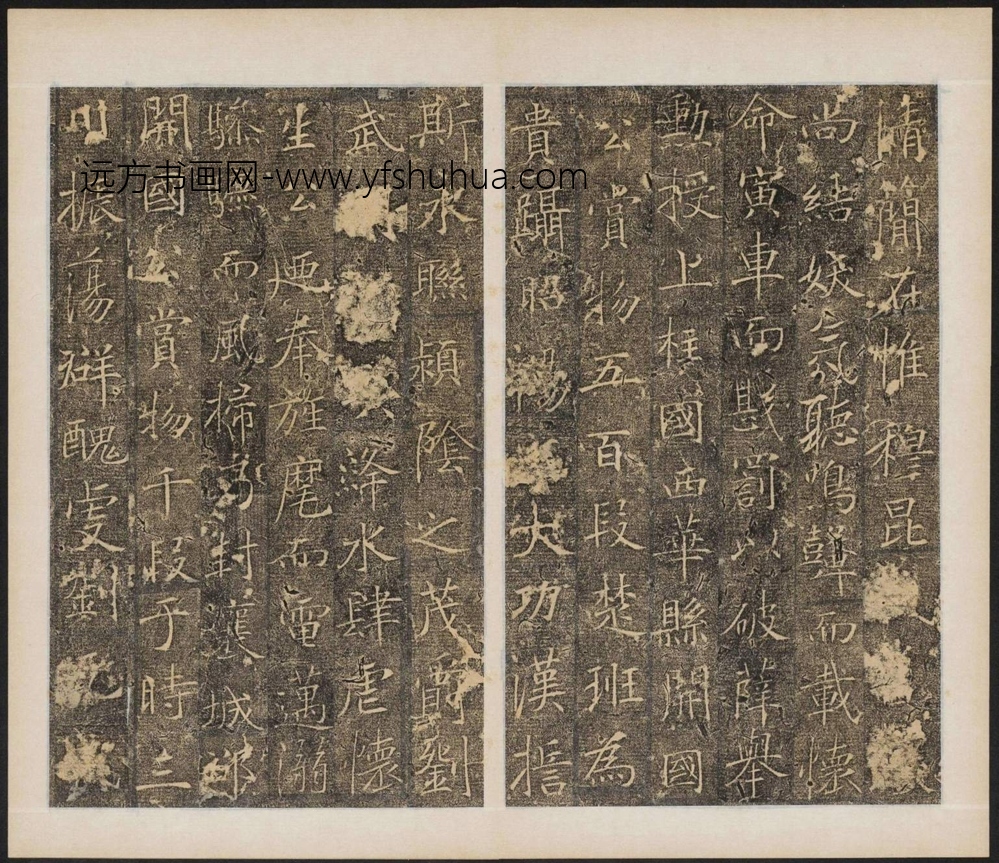 情簡在惟穆昆
尚結妖氛聽鳴鼙而載懷
命寅車而戡罰以破薛舉
勳授上柱國西華縣開國
公賞物五百段楚班為
貴躡昭陽大功漢
斯永聯潁陰之茂爵劉
武絳水肆虐懷
生公迺奉旌麾而電邁
而風掃封襄城郡
開國公賞物千段于時三
川振蕩群醜虔劉
远方书画网-www.yfshuhua.com